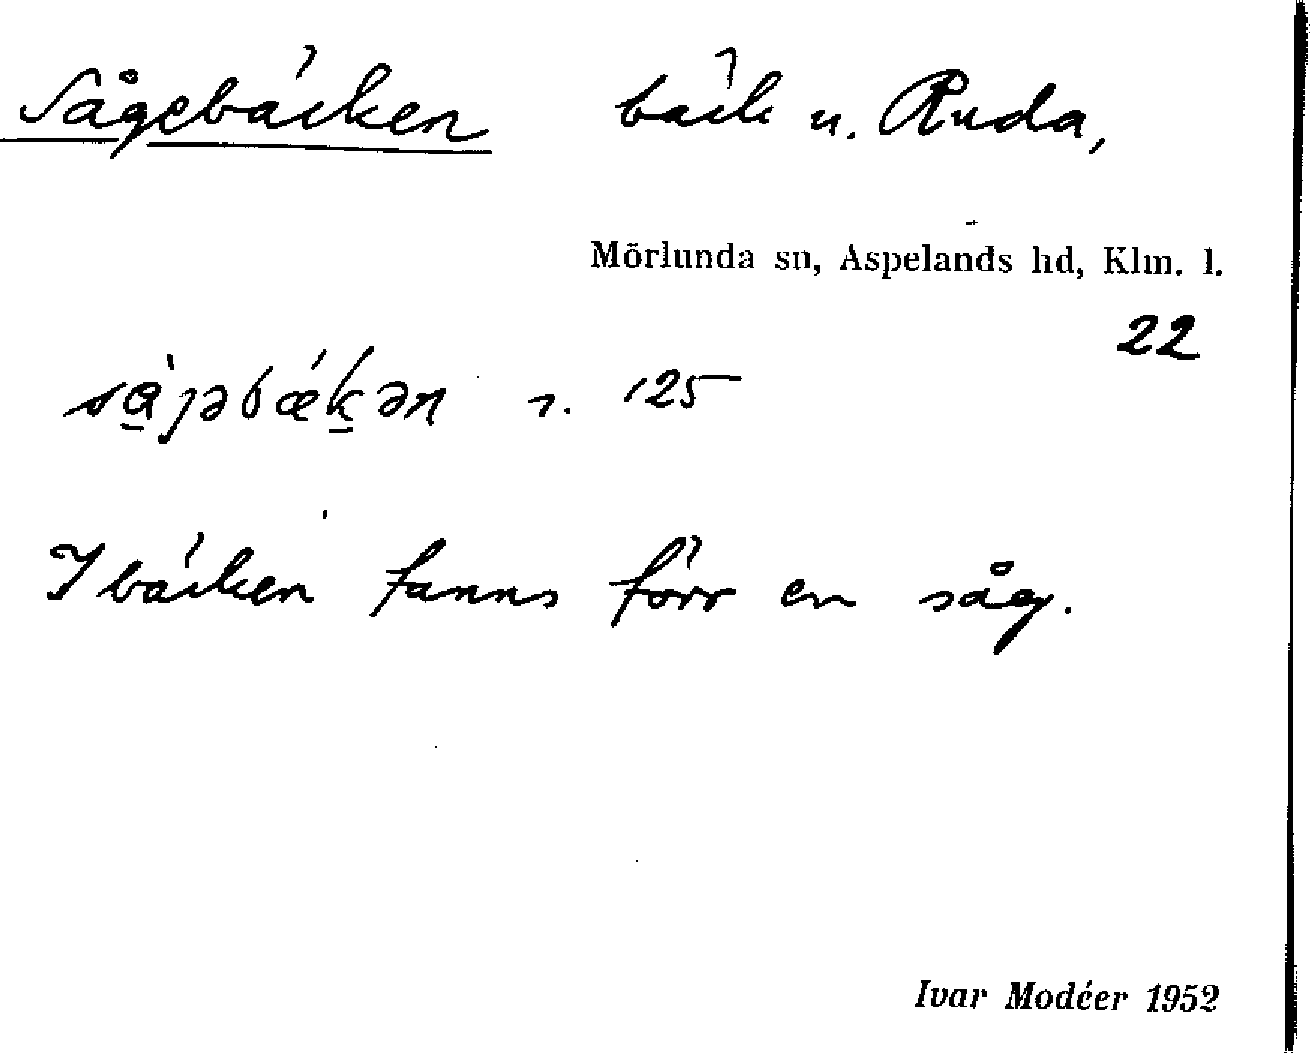 Sågebäcken bäck u. Ruda,
Mörlunda sn, Aspelands hd, Klm. l.
22
125
I bäcken fanns förr en såg.
Ivar Modéer 1952